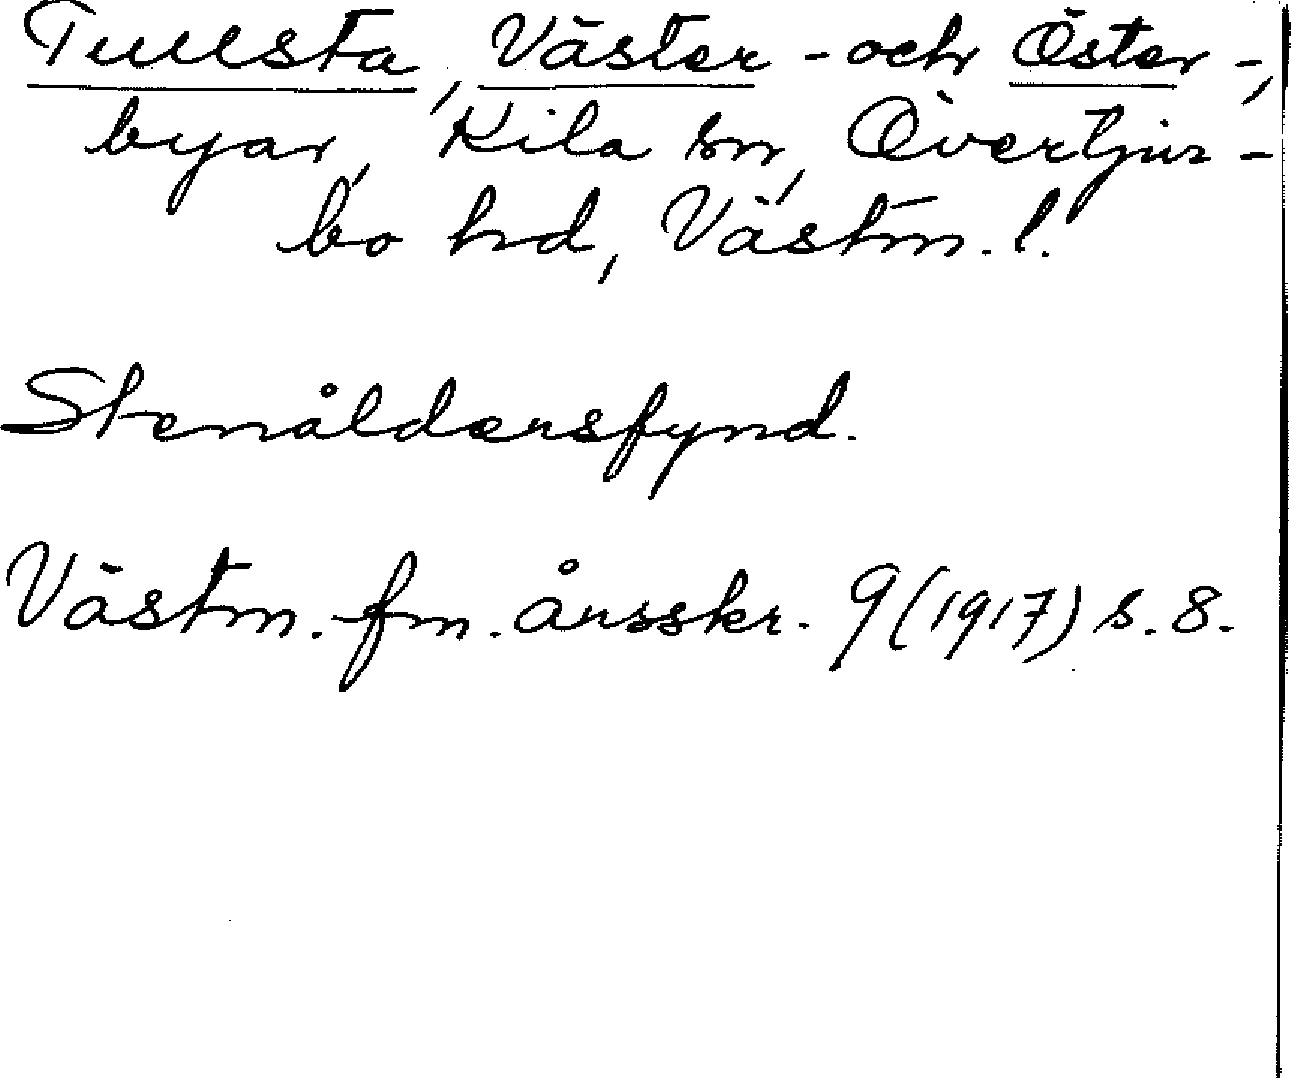 Tullsta, Väster- och Öster-,
byar, Kila sn, Övertjur-
bo hd, Västm. l.
Stenåldersfynd.
Västm. fm. årsskr. 9 (1917) s. 8.